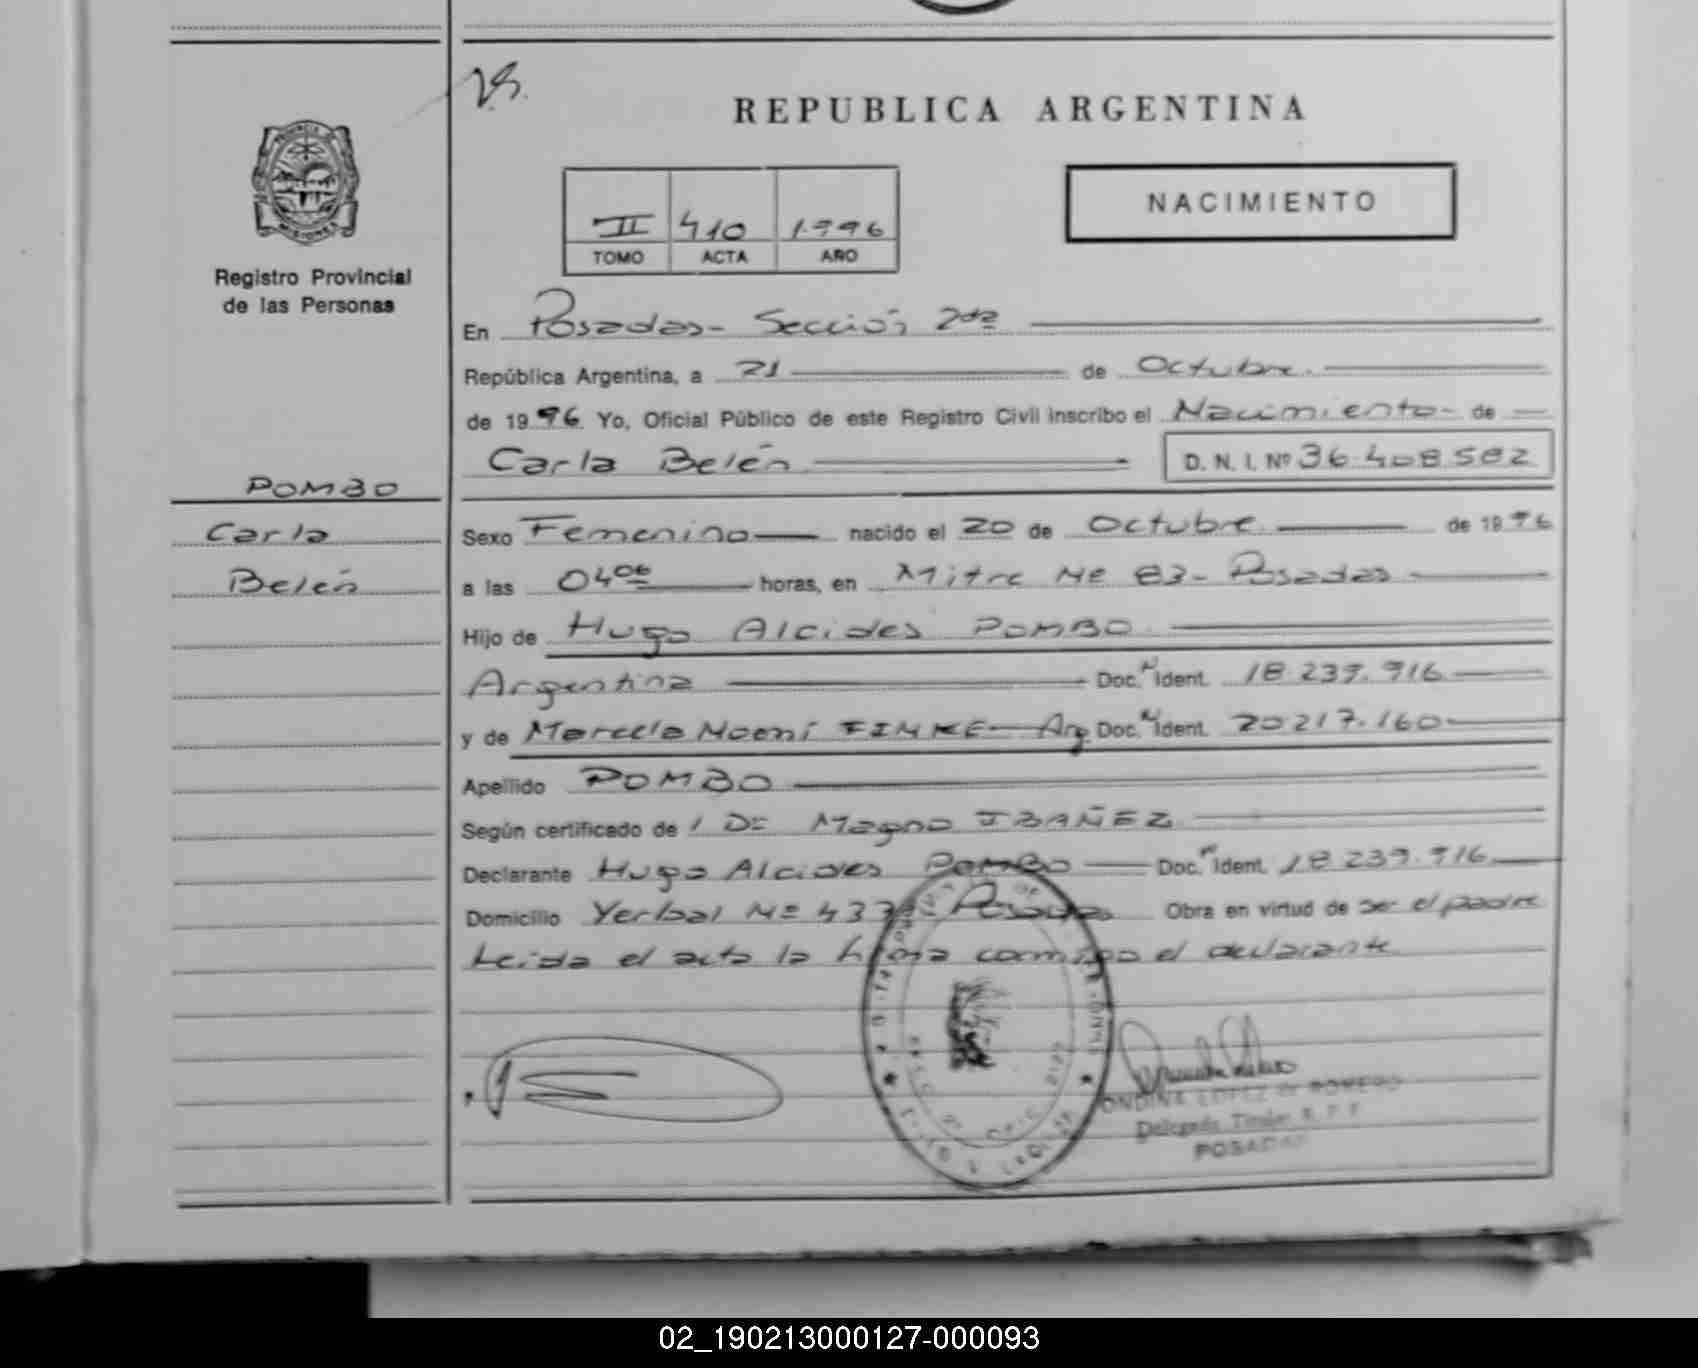 REPUBLICA ARGENTINA
PROVINCIA DE
MISIONES
Registro Provincial
de las Personas
NACIMIENTO
II 410 1996
TOMO ACTA AÑO
En Posadas- Sección 2da
República Argentina, a 21 de Octubre.
de 1996 Yo, Oficial Público de este Registro Civil inscribo el Nacimiento- de
Carla Belén D. N. I. Nº 36.408.582
POMBO
Carla
Belén
Sexo Femenino nacido el 20 de Octubre de 1996
a las 04 horas, en Mitre Nº 83- Posadas
Hijo de Hugo Alcides POMBO
Argentina Doc. N Ident. 18.239.916
y de Marcela Noemí FINKE- Arg. Doc. N Ident. 20.217.160
Apellido POMBO
Según certificado de / Dr Magno IBAÑEZ
Declarante Hugo Alcides POMBO Doc. N Ident. 18.239.916
Domicilio Yerbal Nº Posadas Obra en virtud de ser el padre
Leída el acta la firma conmigo el declarante
ONDINA LOPEZ de ROMERO
Delegada Titular R. P. P.
POSADAS
02_190213000127-000093